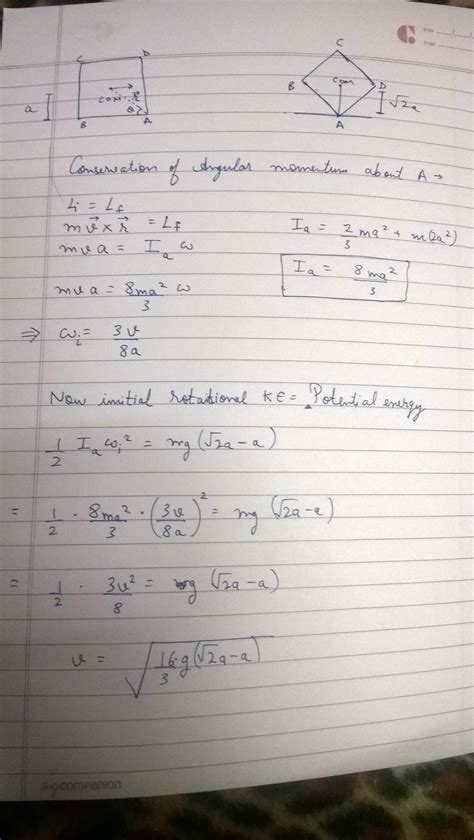 Date
Page
C
D
a
com
r
θ
B
A
C
B
com
D
√2a
A
Conservation of Angular momentum about A →
Li = Lf
mv⃗ × r⃗ = Lf
mva = Ia ω
Ia = 2/3 ma² + m(2a²)
mva = 8ma²/3 ω
Ia = 8ma²/3
⇒ ωi = 3v/8a
Now initial rotational KE = Potential energy
1/2 Ia ωi² = mg(√2a - a)
= 1/2 · 8ma²/3 · (3v/8a)² = mg (√2a - a)
= 1/2 · 3v²/8 = g (√2a - a)
v = √(16/3 · g(√2a - a))
companion